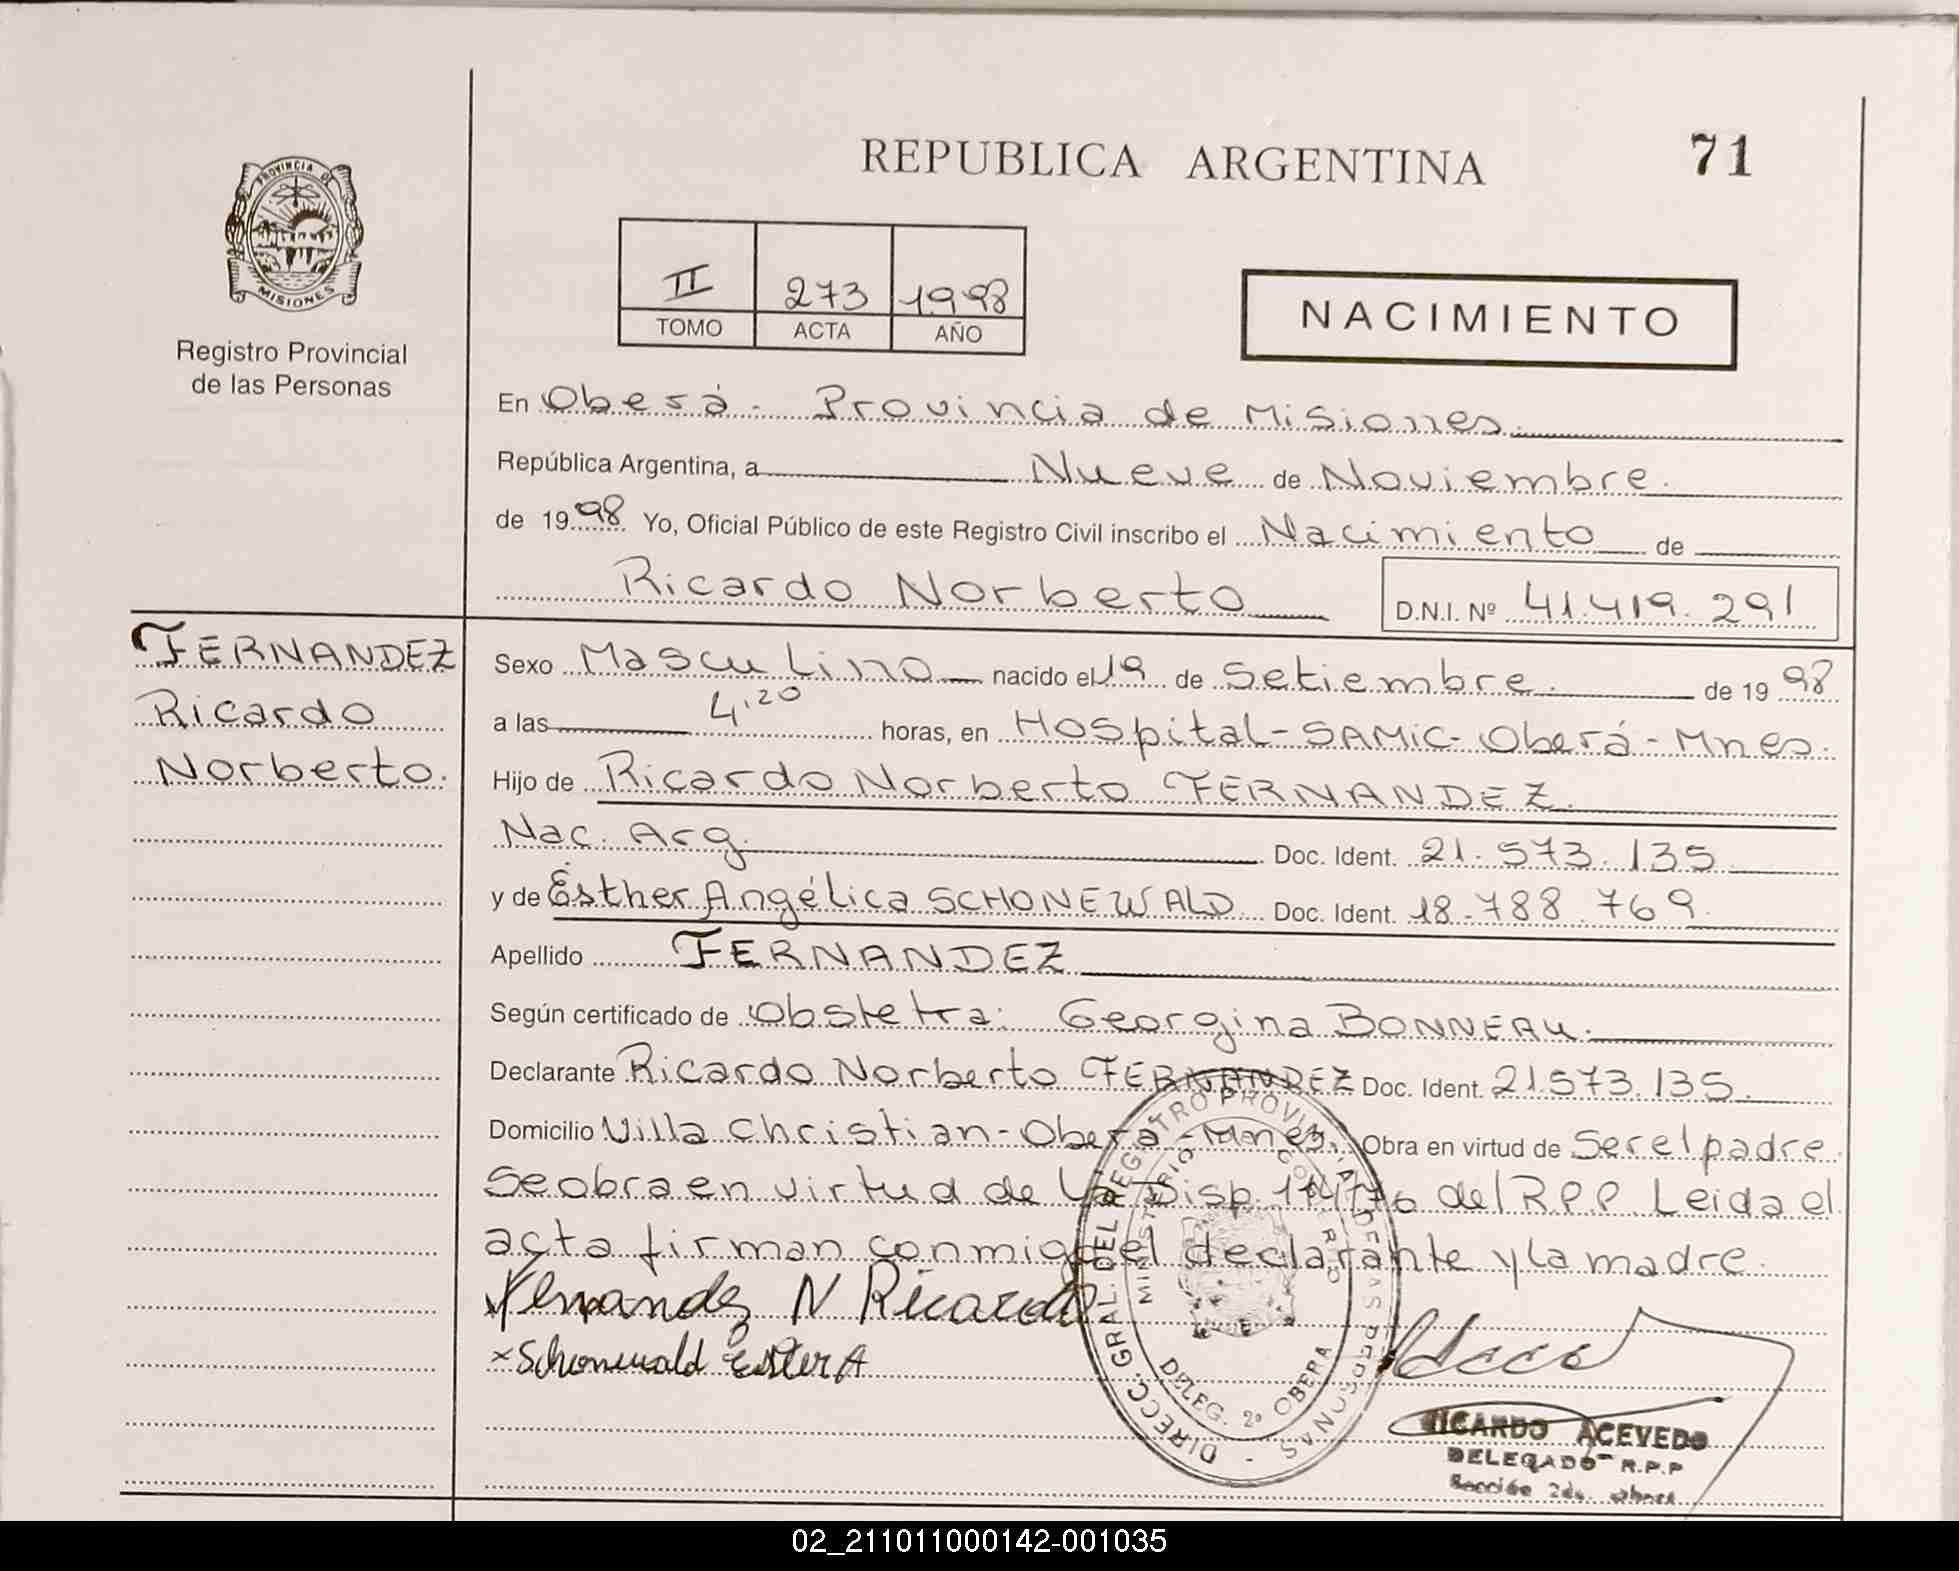 REPUBLICA ARGENTINA
71
PROVINCIA DE
MISIONES
Registro Provincial
de las Personas
II 273 1998
TOMO ACTA AÑO
NACIMIENTO
En Oberá - Provincia de Misiones.
República Argentina, a Nueve de Noviembre.
de 1998 Yo, Oficial Público de este Registro Civil inscribo el Nacimiento de
Ricardo Norberto D.N.I. Nº 41.419.291
FERNANDEZ
Ricardo
Norberto.
Sexo Masculino nacido el 19 de Setiembre. de 1998
a las 4,20 horas, en Hospital-SAMIC-Oberá-Mnes.
Hijo de Ricardo Norberto FERNANDEZ.
Nac. Arg. Doc. Ident. 21.573.135.
y de Esther Angélica SCHONEWALD Doc. Ident. 18.788.769.
Apellido FERNANDEZ
Según certificado de Obstetra: Georgina BONNEAU.
Declarante Ricardo Norberto FERNANDEZ Doc. Ident. 21.573.135.
Domicilio Villa Christian-Oberá-Mnes. Obra en virtud de Ser el padre.
Se obra en virtud de la Disp. del R.P.P. Leida el
acta firman conmigo el declarante y la madre.
Fernandez N Ricardo
x Schonewald Ester A
DIRECC. GRAL. DEL REGISTRO PROVINCIAL DE LAS PERSONAS
MINISTERIO GOBIERNO
DELEG. 2ª OBERA
RICARDO ACEVEDO
DELEGADO R.P.P
Sección 2da. Oberá
02_211011000142-001035